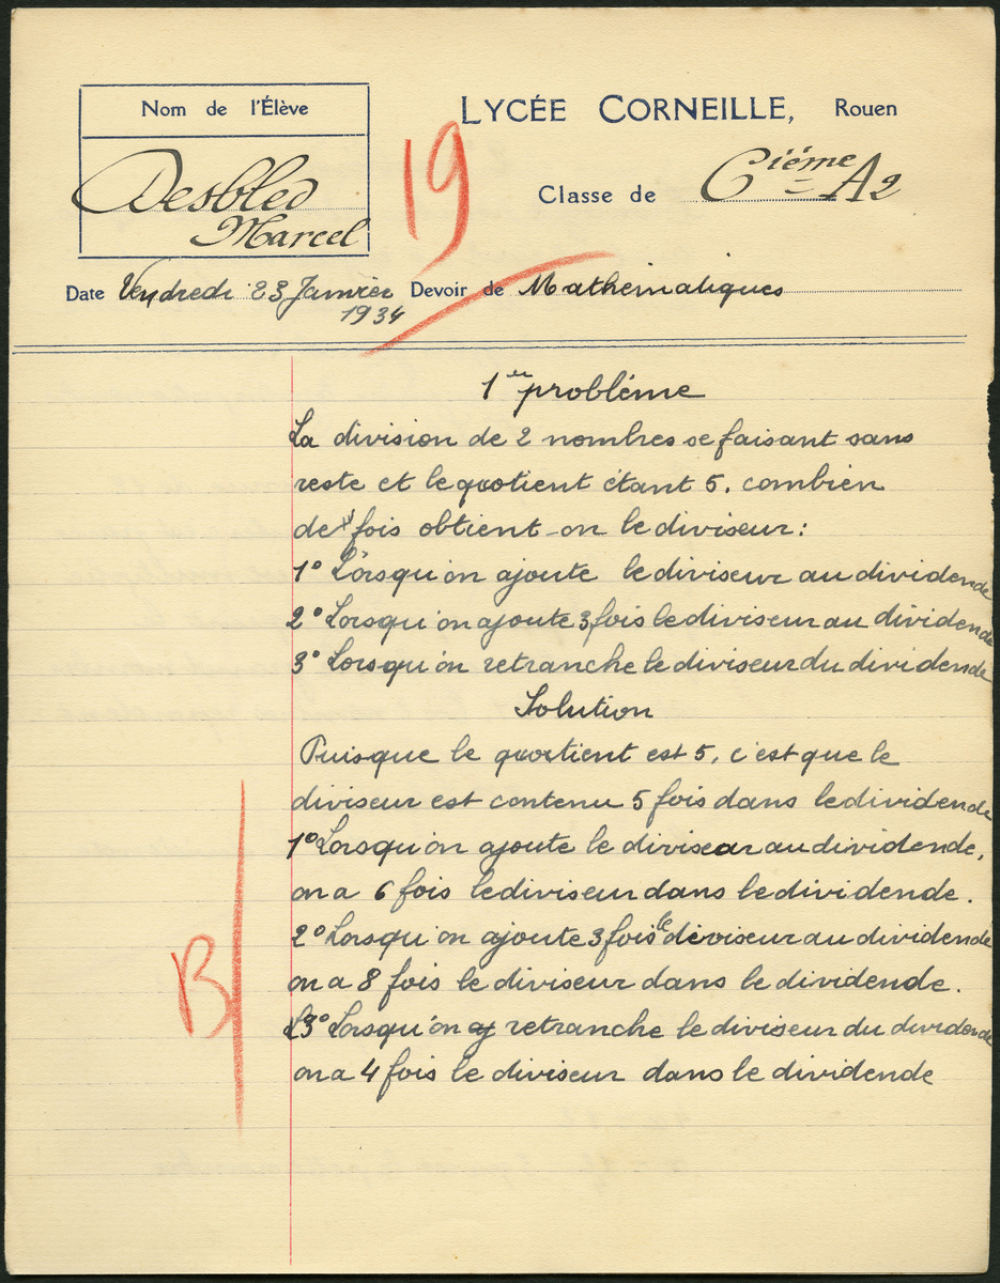 Nom de l'Élève
LYCÉE CORNEILLE, Rouen
19
Desbled
Marcel
Classe de 6ième A2
Date Vendredi 23 Janvier Devoir de Mathématiques
1934
1er problème
La division de 2 nombres se faisant sans
reste et le quotient étant 5, combien
de fois obtient-on le diviseur :
1° Lorsqu'on ajoute le diviseur au dividende
2° Lorsqu'on ajoute 3 fois le diviseur au dividende
3° Lorsqu'on retranche le diviseur du dividende
Solution
Puisque le quotient est 5, c'est que le
diviseur est contenu 5 fois dans le dividende
1° Lorsqu'on ajoute le diviseur au dividende,
on a 6 fois le diviseur dans le dividende.
2° Lorsqu'on ajoute 3 fois le diviseur au dividende
on a 8 fois le diviseur dans le dividende.
B
3° Lorsqu'on retranche le diviseur du dividende
on a 4 fois le diviseur dans le dividende